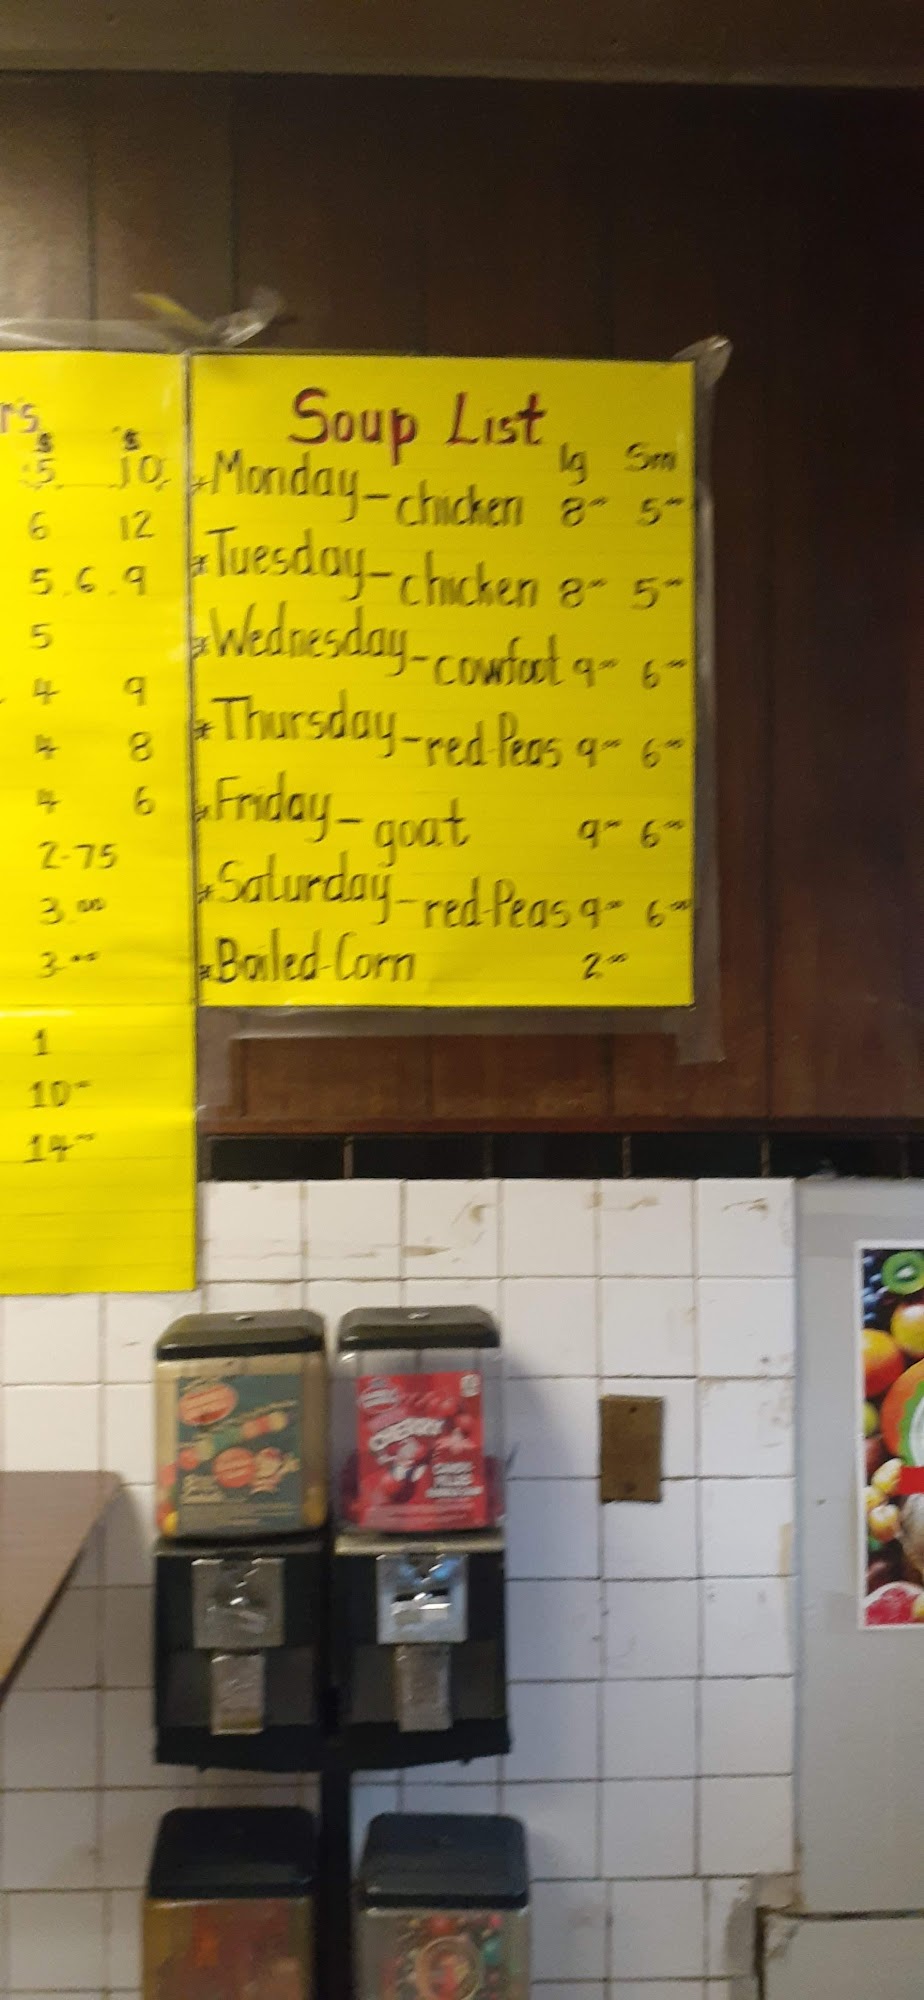 r's
$ $
5 10
6 12
5.6.9
5
4 9
4 8
4 6
2-75
3.00
3-00
1
10-
14
Soup List
lg Sm
*Monday-chicken 8 5
*Tuesday-chicken 8 5
*Wednesday-cowfoot 9 6
*Thursday-red-Peas 9 6
*Friday-goat 9 6
*Saturday-red-Peas 9 6
*Boiled-Corn 2
CHERRY